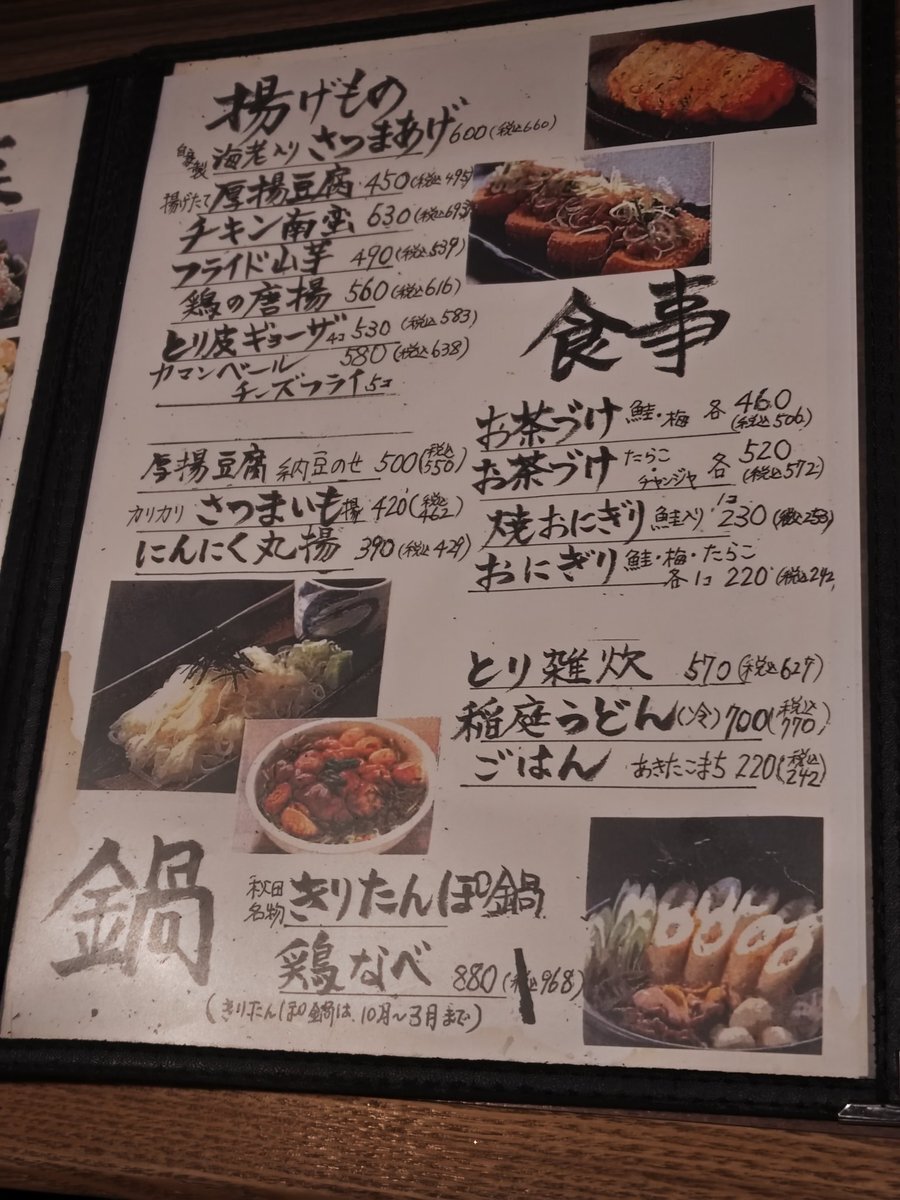 揚げもの
自家製 海老入り さつまあげ 600 (税込660)
揚げたて 厚揚豆腐 450 (税込495)
チキン南蛮 630 (税込693)
フライド山芋 490 (税込539)
鶏の唐揚 560 (税込616)
とり皮ギョーザ 4コ 530 (税込583)
カマンベール 580 (税込638)
チーズフライ 5コ
厚揚豆腐 納豆のせ 500 (税込550)
カリカリ さつまいも揚 420 (税込462)
にんにく丸揚 390 (税込429)
食事
お茶づけ 鮭・梅 各 460 (税込506)
お茶づけ たらこ・チャンジャ 各 520 (税込572)
焼おにぎり 鮭入り 1コ 230 (税込253)
おにぎり 鮭・梅・たらこ
各1コ 220 (税込242
とり雑炊 570 (税込627)
稲庭うどん (冷) 700 (税込770)
ごはん あきたこまち 220 (税込242)
鍋
秋田名物 きりたんぽ鍋
鶏なべ 880 (税込968)
(きりたんぽ鍋は、10月〜3月まで)